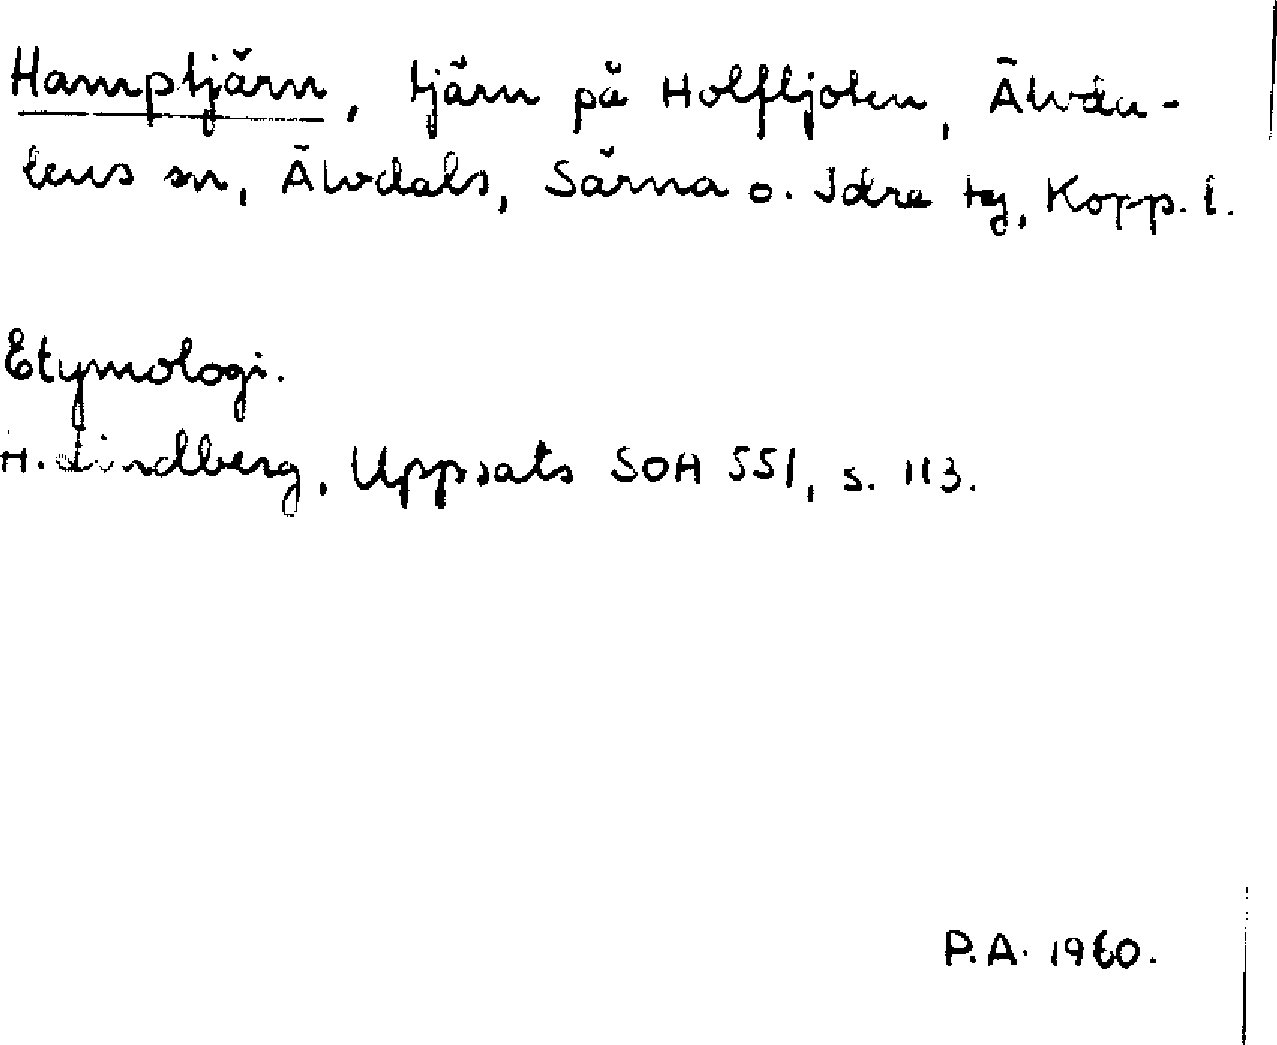 Hamptjärn, tjärn på Holfljoten, Älvda-
lens sn, Älvdals, Särna o. Idre tg, Kopp. l.
Etymologi.
H. Lindberg, Uppsats SOA 551, s. 113.
P.A. 1960.